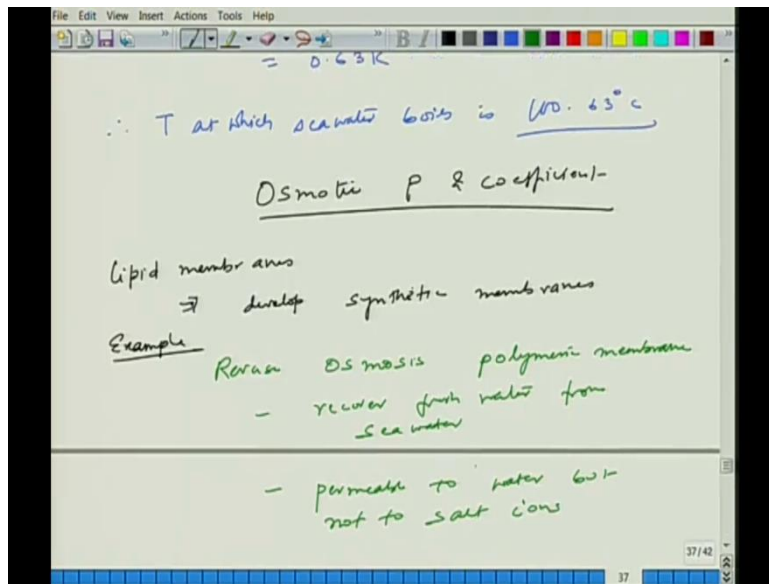 File Edit View Insert Actions Tools Help
= 0.63K
∴ T at which seawater boils is 100.63°C
Osmotic P & coefficient
Lipid membranes
⇒ develop synthetic membranes
Example
Reverse Osmosis polymeric membrane
- recover fresh water from
seawater
- permeable to water but
not to salt ions
37/42
37